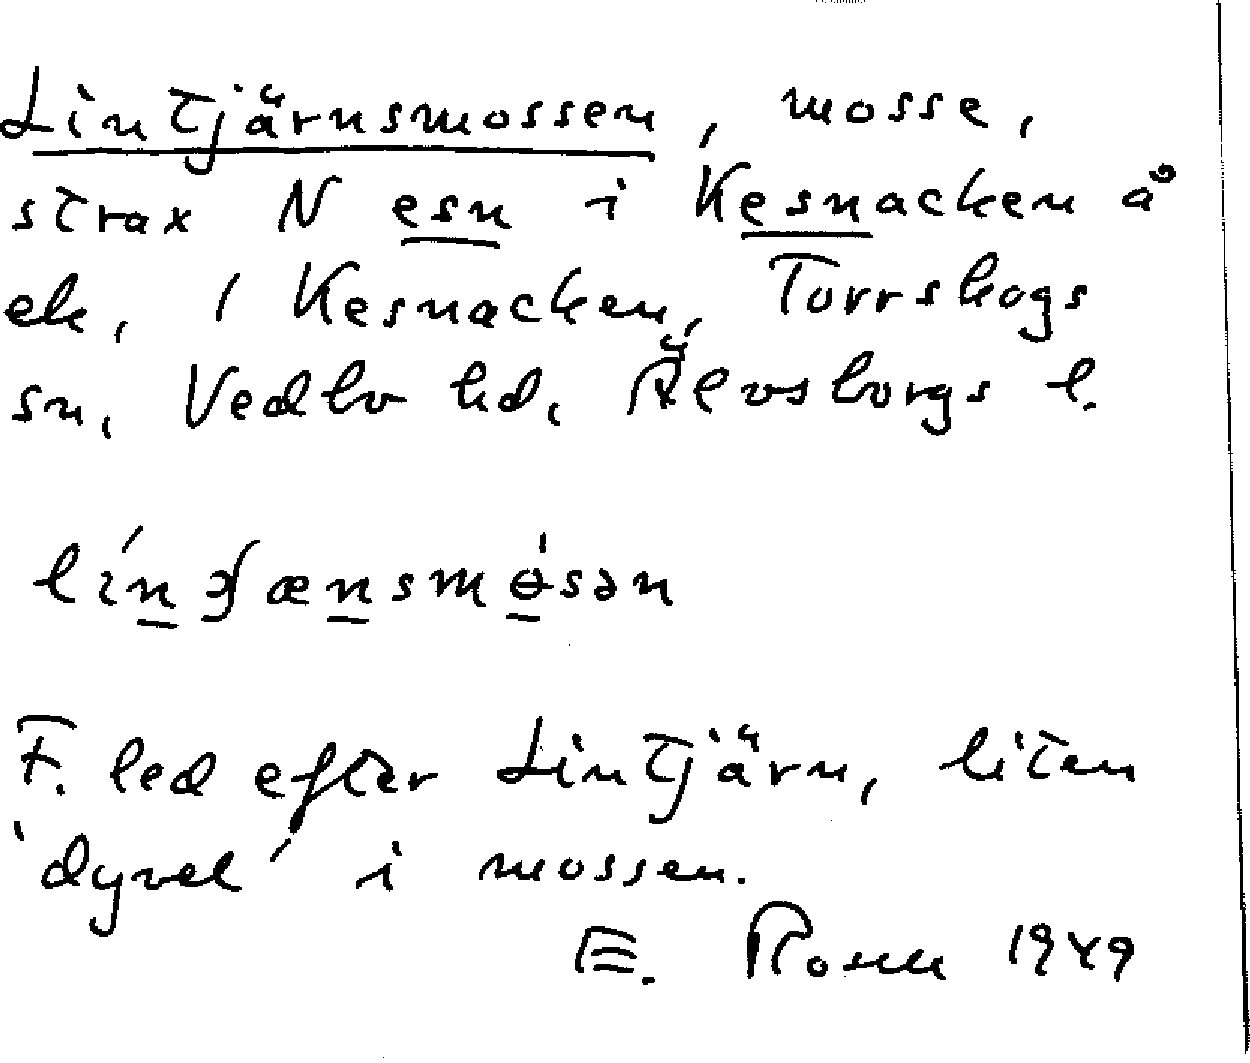 Lintjärnsmossen, mosse,
strax N esn i Kesnacken å
ek, 1 Kesnacken, Torrskogs
sn, Vedbo hd, Älvsborgs l.
F. led efter Lintjärn, liten
'dyvel' i mossen.
E. 1949